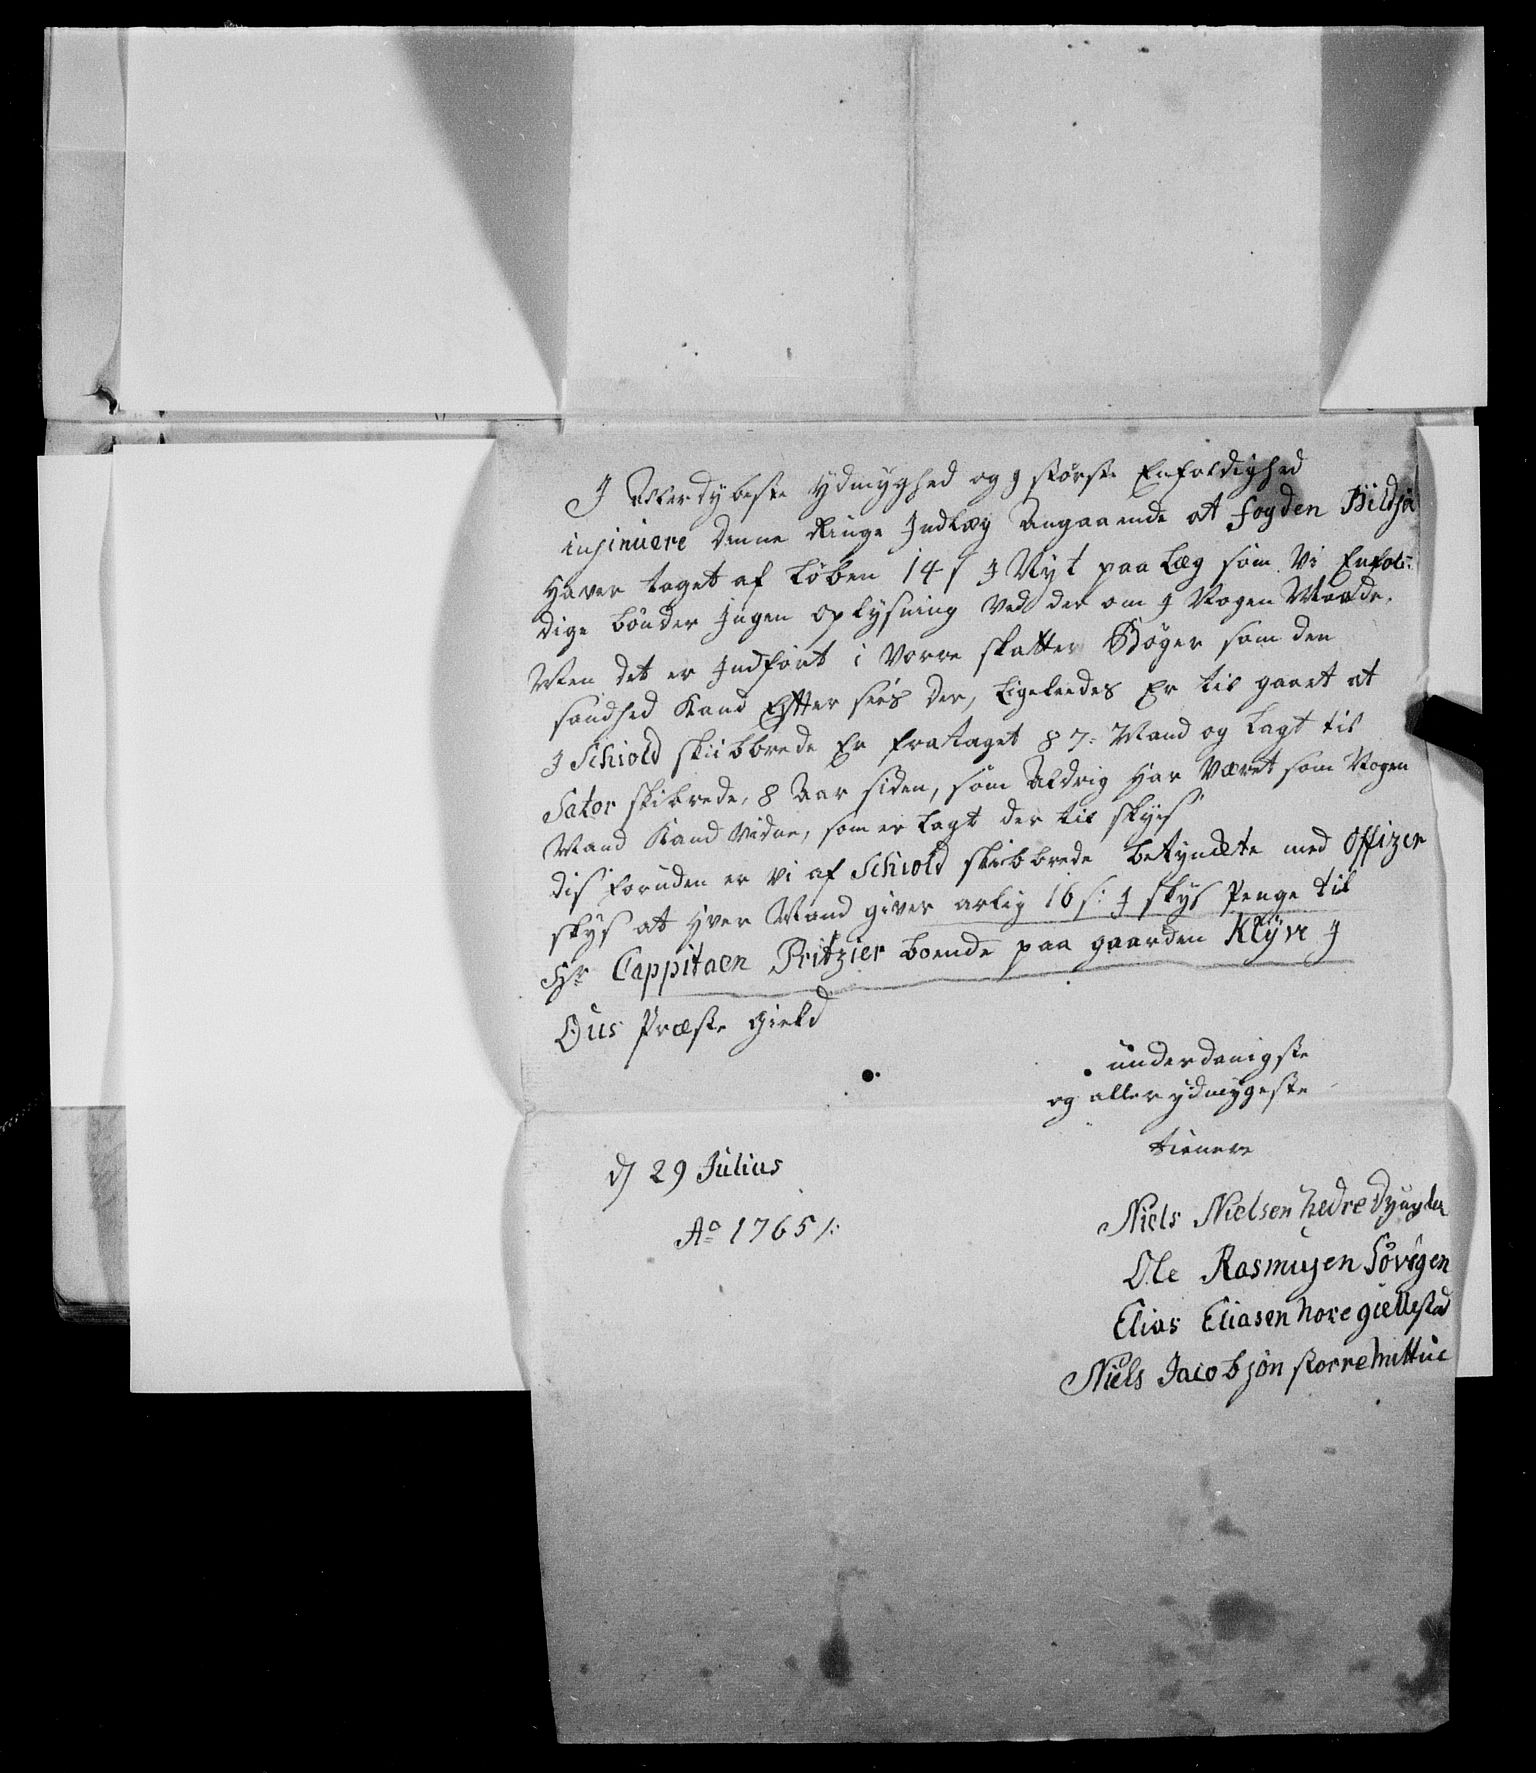 J Allerdybeste ydmyghed og J største Enfoldighed
insinuere denne Ringe Indlæg Angaaende at fogden
Haver taget af Løben 14 s J Nyt paa Læg som Vi Enfol:
dige bønder Jngen oplysning Ved der om J Nogen Maade.
Men det er Jndført i Vorre skatter Bøger som den
sandhed Kand Efter sees der, Ligeleedes Er til gaaet at
J Schiold skibbrede Er fra taget 87: Mand og Lagt til
skibrede, 8 Aar siden, som Aldrig Har Været som Nogen
Mand Kand Vidne, som er Lagt der til skyds
dis foruden er Vi af Schiold skibbrede betyndete med Offizer
skys at Hver Mand giver arlig 16 s: J skys Penge til
Hr Cappitaen Pritzier boende paa gaarden Klyve J
Ous Præste gield
underdanigste
og aller ydmygeste
tienere
d 29 Julius
Ao 1765 /:
Niels Nielsen hedre
Ole Rasmusen
Elias Eliasen
Niels Jacobsøn